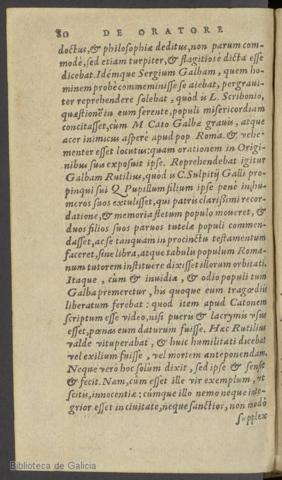 80 DE ORATORE
doctus, & philosophiæ deditus, non parum com-
modè, sed etiam turpiter, & flagitiosè dicta esse
dicebat. Idémque Sergium Galbam, quem ho-
minem probè commeminisse se aiebat, pergraui-
ter reprehendere solebat, quòd is L. Scribonio,
quæstionē in eum ferente, populi misericordiam
concitasset, cum M Cato Galbæ grauis, atque
acer inimicus asperè apud pop. Roma. & vehe-
menter esset locutus: quam orationem in Origi-
nibus suis exposuit ipse. Reprehendebat igitur
Galbam Rutilius, quòd is C. Sulpitij Galli pro-
pinqui sui Q Pupillum filium ipse penè in hu-
meros suos extulisset, qui patris clarissimi recor-
datione, & memoria fletum populo moueret, &
duos filios suos paruos tutelæ populi commen-
dasset, ac se tanquam in procinctu testamentum
faceret, sine libra, atque tabulis populum Roma-
num tutorem instituere dixisset illorum orbitati.
Itaque, cùm & inuidia, & odio populi tum
Galba premeretur, his quoque eum tragœdiis
liberatum ferebat: quod item apud Catonem
scriptum esse video, nisi pueris & lacrymis vsus
esset, pœnas eum daturum fuisse. Hæc Rutilius
valde vituperabat, & huic humilitati dicebat
vel exilium fuisse, vel mortem anteponendam.
Neque verò hoc solùm dixit, sed ipse & sensit
& fecit. Nam, cùm esset ille vir exemplum, vt
scitis, innocentiæ: cùmque illo nemo neque inte-
grior esset in ciuitate, neque sanctior, non modò
supplex
Biblioteca de Galicia